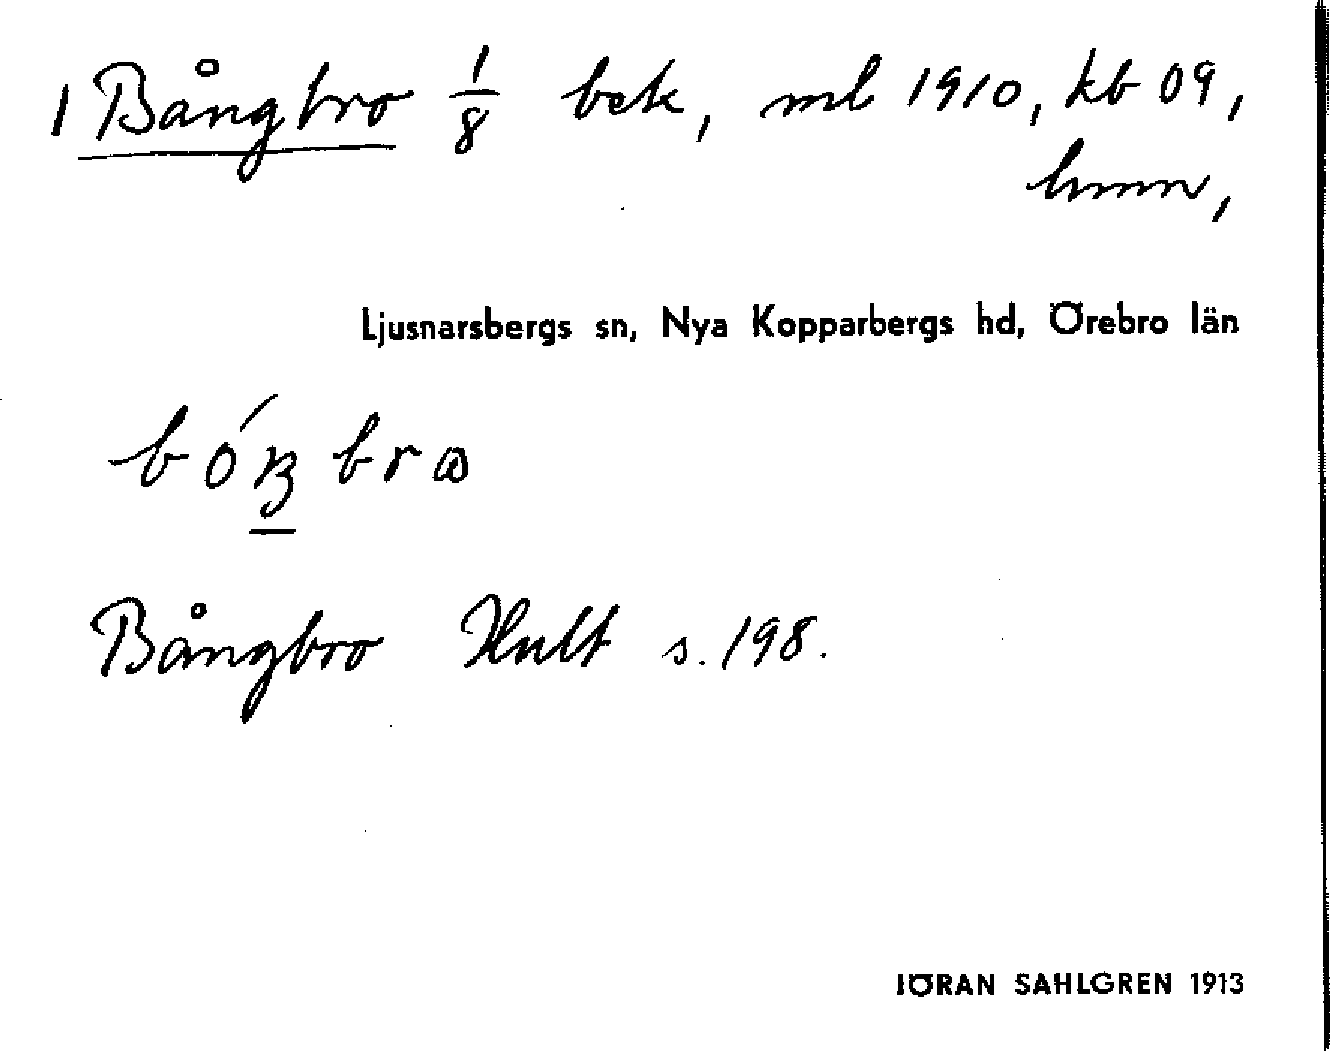 1 Bångbro 1/8 bek, ml 1910, kb 09,
hmn,
Ljusnarsbergs sn, Nya Kopparbergs hd, Örebro län
bra
Bångbro Hult s. 198.
JÖRAN SAHLGREN 1913